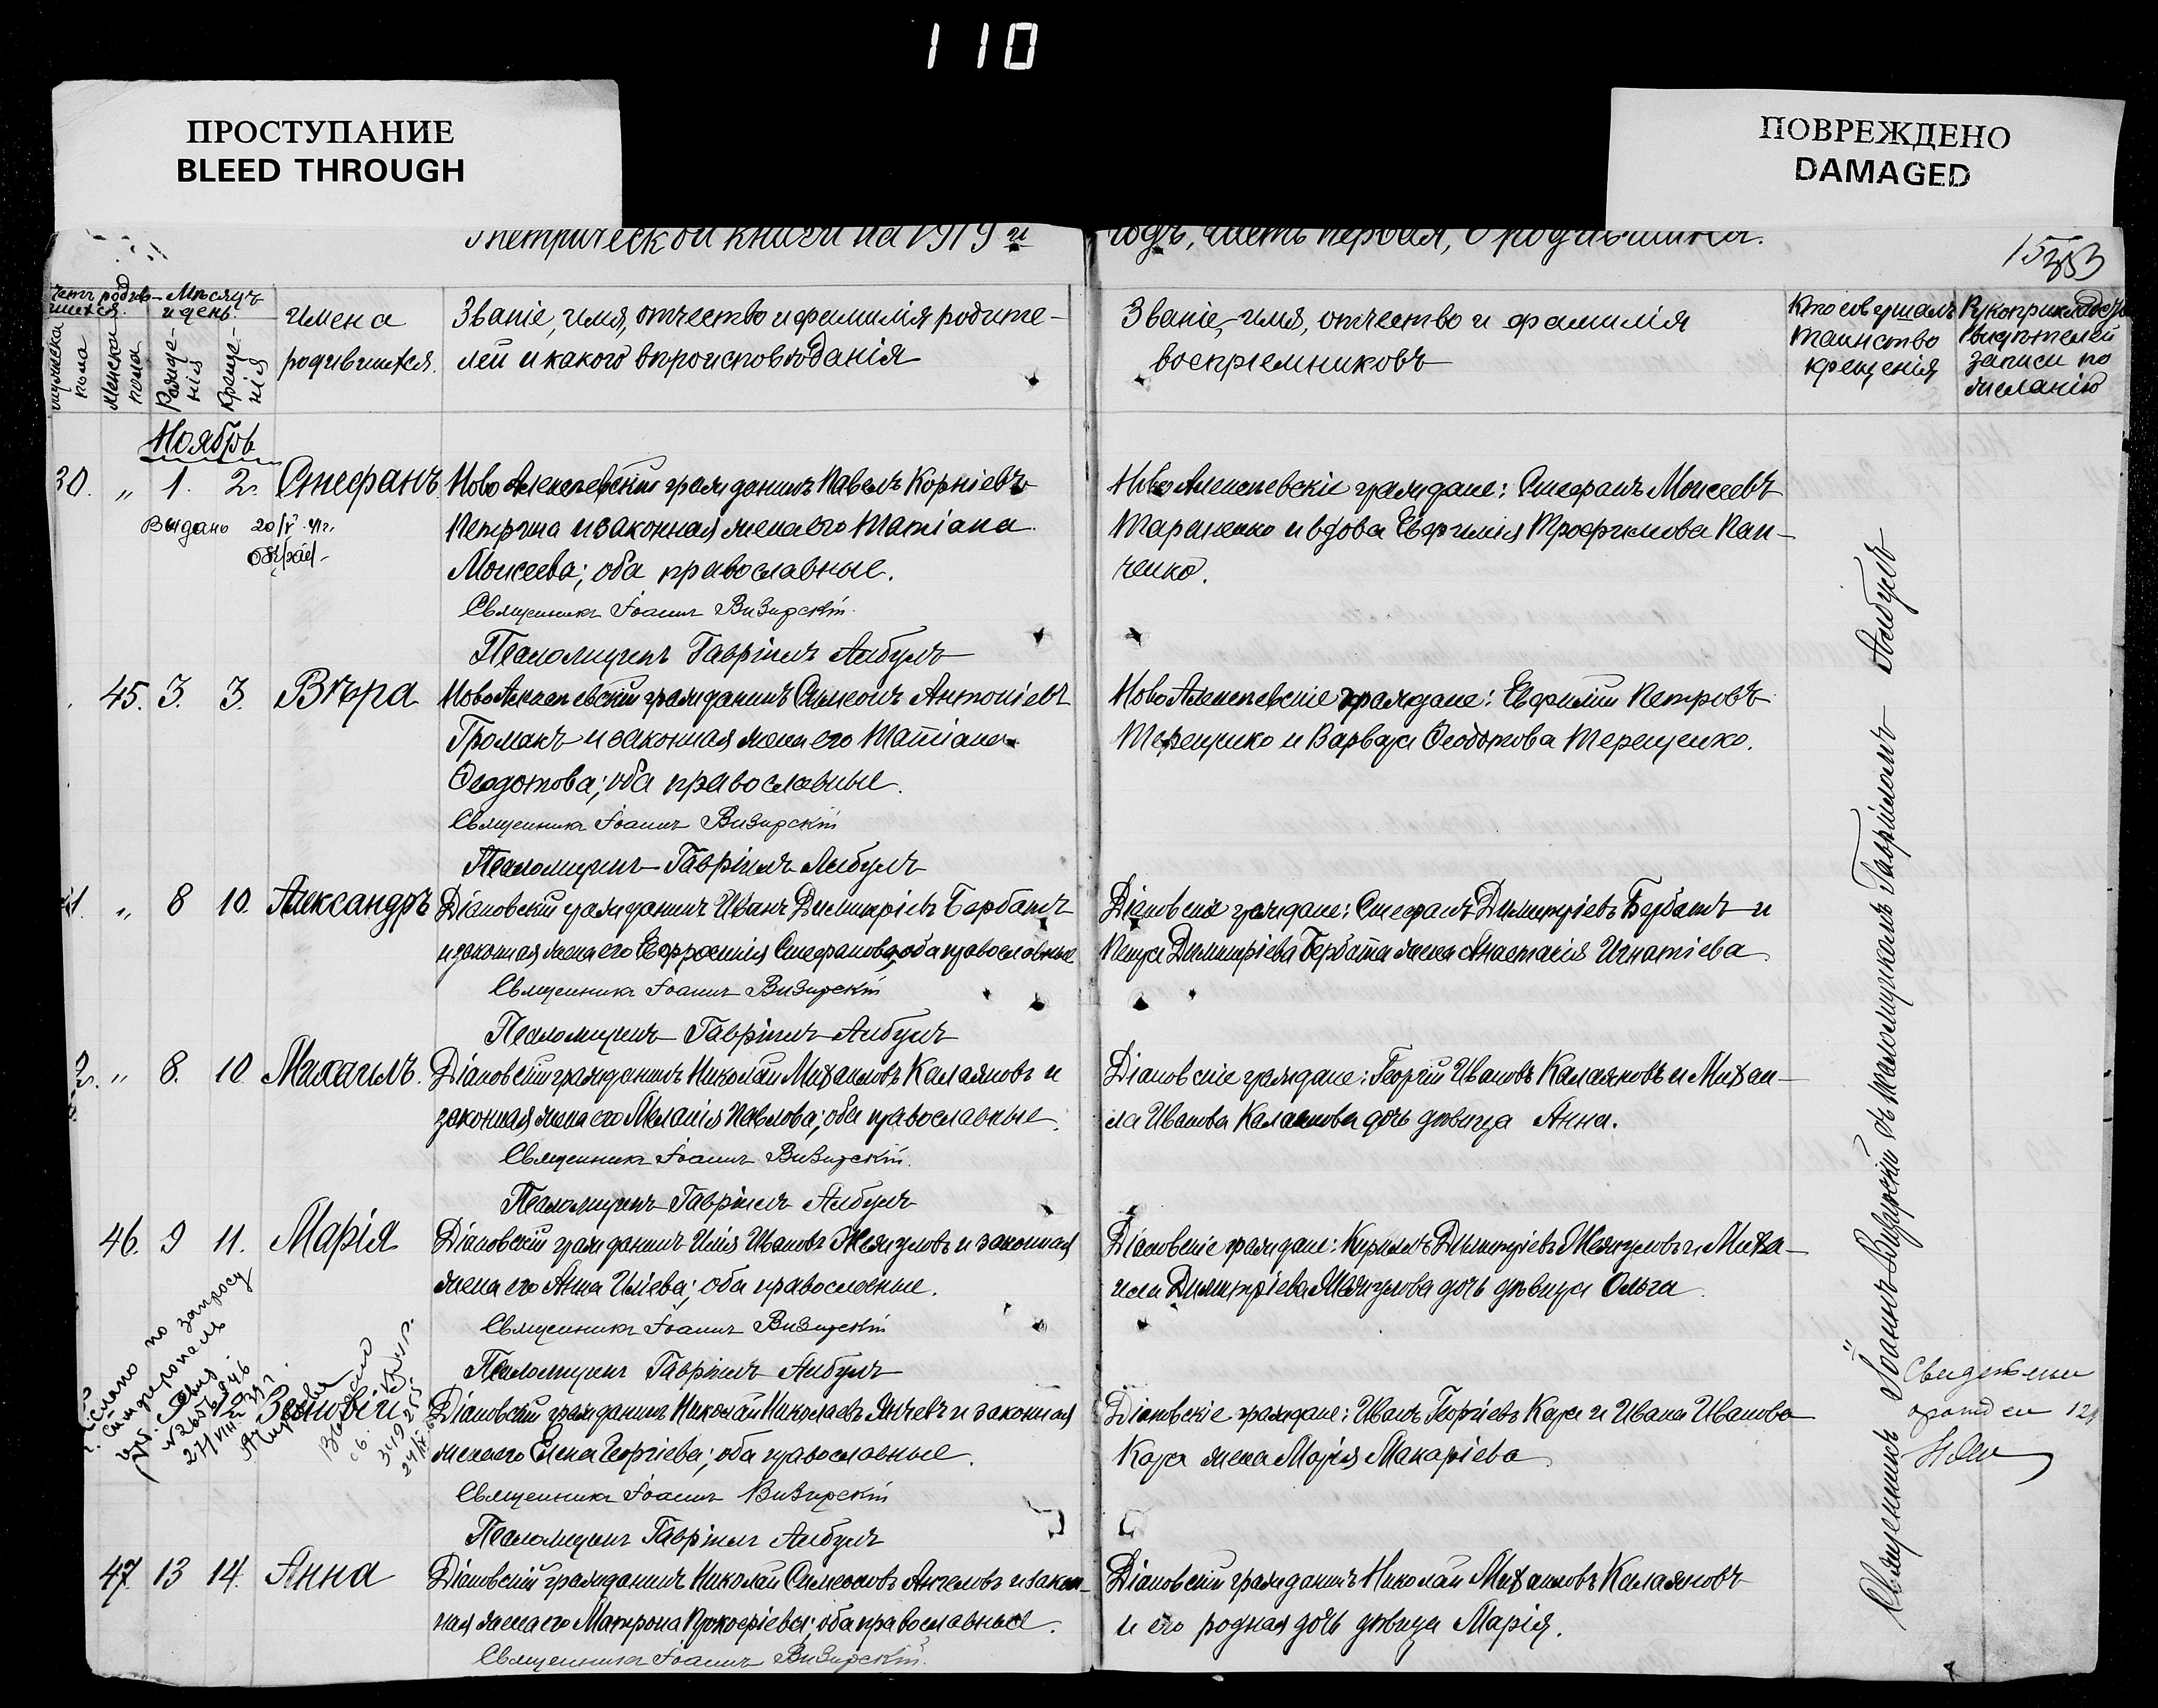 110
ПРОСТУПАНИЕ
BLEED THROUGH
ПОВРЕЖДЕНО
DAMAGED
Метрической книги на 1919 й
годъ, часть первая, о родившихся.
15
353
Счетъ родив-
шихся.
мужеска пола
женска пола
Мѣсяцъ и день
Рожде-
нія
Креще-
нія
Имена
родившихся.
Званіе, имя, отчество и фамилія родите-
лей и какого вѣроисповѣданія
Званіе, имя, отчество и фамилія
воспріемниковъ
Кто совершалъ
таинство
крещенія
Рукоприкладство
свидѣтелей
записи по
желанію
Ноябрь
30. „ 1. 2. Стефанъ
Выдано 20/V
Ново Алексѣевскій гражданинъ Павелъ Корніевъ
Петрина и законная жена его Татіана
Моисеева; оба православные.
Священникъ Іоаннъ Визирскій
Псаломщикъ Гавріилъ Албулъ
Ново Алексѣевскіе граждане: Стефанъ Моисеевъ
и вдова Евфимія Трофимова Пан-
ченко.
45. 3. 3. Вѣра
Ново Алексѣевскій гражданинъ Симеонъ Антоніевъ
Громакъ и законная жена его Татіана
Ѳеодотова; оба православные.
Священникъ Іоаннъ Визирскій
Псаломщикъ Гавріилъ Албулъ
Ново Алексѣевскіе граждане: Евфимій Петровъ
Терещенко и Варвара Ѳеодотова Терещенко.
31. „ 8 10. Александръ
Діановскій гражданинъ Иванъ Димитріевъ Бербатъ
и законная жена его Евфросинія Стефанова; оба православные
Священникъ Іоаннъ Визирскій
Псаломщикъ Гавріилъ Албулъ
Діановскіе граждане: Стефанъ Димитріевъ Бербатъ и
Петра Димитріева Бербата жена Анастасія Игнатіева
32. „ 8. 10 Михаилъ.
Діановскій гражданинъ Николай Михаиловъ Калаяновъ и
законная жена его Меланія Павлова; оба православные.
Священникъ Іоаннъ Визирскій.
Псаломщикъ Гавріилъ Албулъ
Діановскіе граждане: Георгій Ивановъ Калаяновъ и Михаи-
ла Иванова Калаянова дочь дѣвица Анна.
46. 9 11. Марія
Діановскій гражданинъ Илія Ивановъ Мянзуловъ и законная
жена его Анна Иліева; оба православные.
Священникъ Іоаннъ Визирскій
Псаломщикъ Гавріилъ Албулъ
Діановскіе граждане: Кириллъ Димитріевъ Мянзуловъ и Миха-
ила Димитріева Мянзулова дочь дѣвица Ольга
по запросу
Зиновій
Діановскій гражданинъ Николай Николаевъ Янчевъ и законная
жена его Елена Георгіева; оба православные.
Священникъ Іоаннъ Визирскій
Псаломщикъ Гавріилъ Албулъ
Діановскіе граждане: Иванъ Георгіевъ Кара и Ивана Иванова
Кара жена Марія Макаріева
47. 13 14. Анна
Діановскій гражданинъ Николай Симеоновъ Ангеловъ и закон-
ная жена его Матрона Прокофіева; оба православные.
Священникъ Іоаннъ Визирскій.
Діановскій гражданинъ Николай Михаиловъ Калаяновъ
и его родная дочь дѣвица Марія.
Священникъ Іоаннъ Визирскій съ псаломщикомъ Гавріиломъ Албулъ